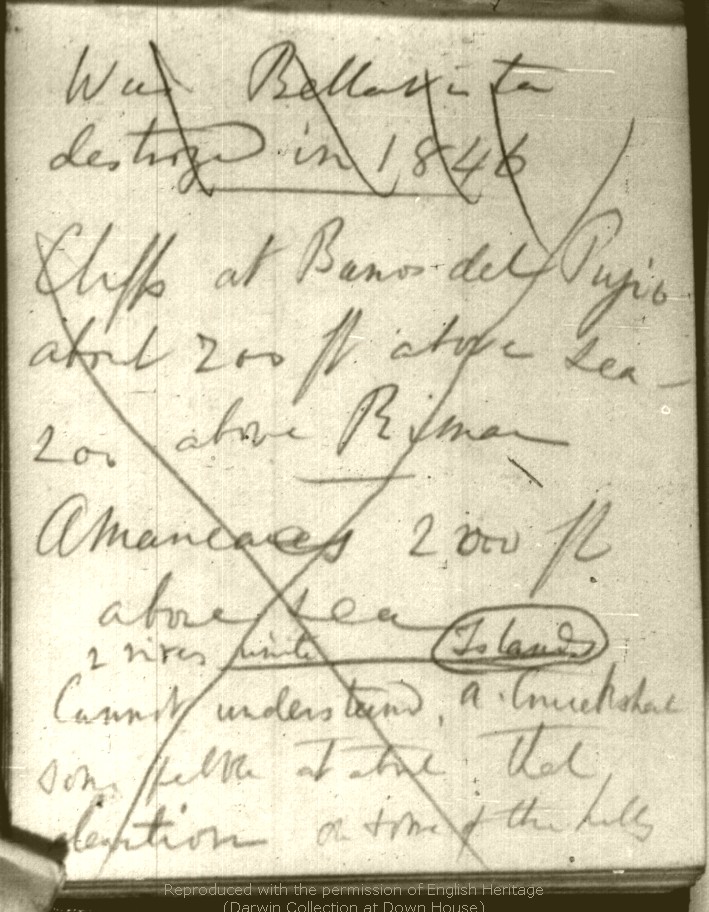 Was Bellavista
destroyed in 1846
Cliffs at Banos del Pujio
about 200 ft above sea —
200 above Rimac
Amancaes 2000 ft
above sea
2 rivers unite Islands
Cannot understand, a
some pebble at about that
elevation on some of the hills
Reproduced with the permission of English Heritage
(Darwin Collection at Down House)